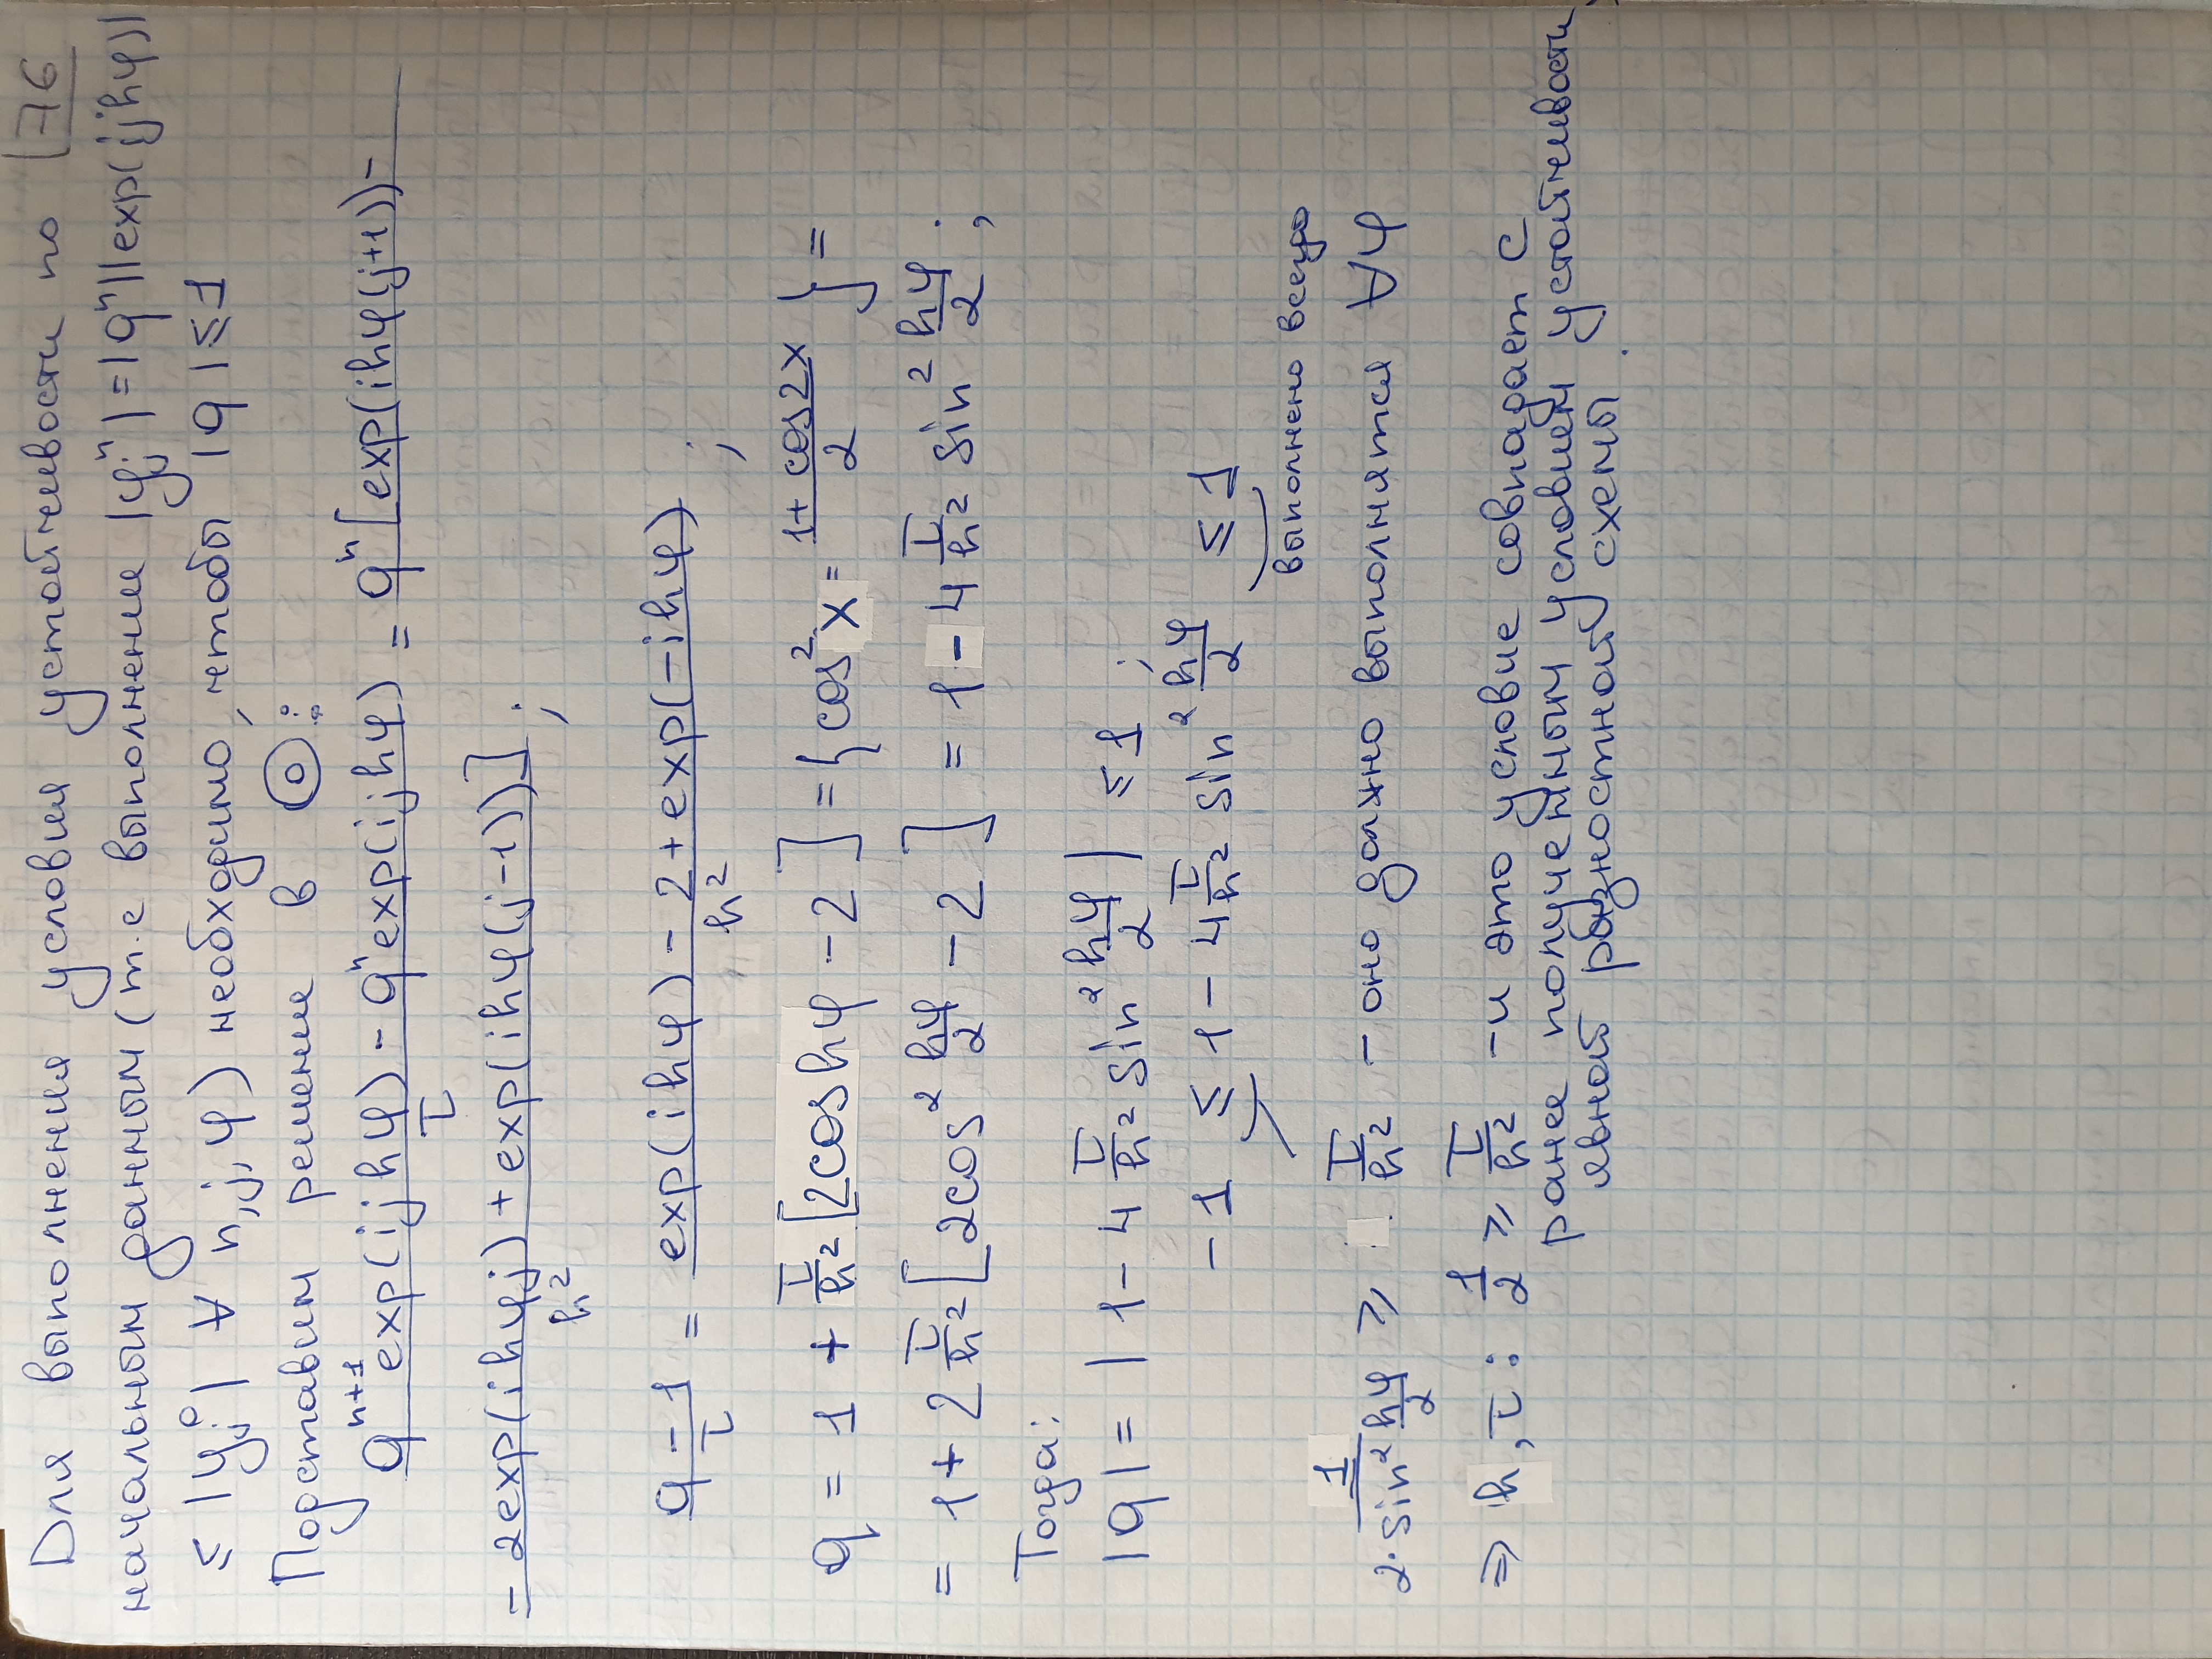 76
Для выполнения условия устойчивости по
начальным данным (т.е выполнение |y_j^n| = |q^n||exp(ijhφ)|
≤ |y_j^0| ∀ n,j,φ) необходимо, чтобы |q| ≤ 1
Подставим решение в ⊙:
(q^{n+1} exp(ijhφ) - q^n exp(ijhφ))/τ = q^n [exp(ihφ(j+1)) -
- 2exp(ihφj) + exp(ihφ(j-1))]/h^2 ;
(q - 1)/τ = (exp(ihφ) - 2 + exp(-ihφ))/h^2 ;
q = 1 + τ/h^2 [2coshφ - 2] = {cos^2 x = (1 + cos2x)/2} =
= 1 + 2 τ/h^2 [2cos^2 hφ/2 - 2] = 1 - 4 τ/h^2 sin^2 hφ/2 ;
Тогда:
|q| = |1 - 4 τ/h^2 sin^2 hφ/2| ≤ 1 ;
-1 ≤ 1 - 4 τ/h^2 sin^2 hφ/2 ≤ 1
выполнено всегда
1/(2·sin^2 hφ/2) ≥ τ/h^2 - оно должно выполнятся ∀φ
⇒ h,τ : 1/2 ≥ τ/h^2 - и это условие совпадает с
ранее полученным условием устойчивости
явной разностной схемы.